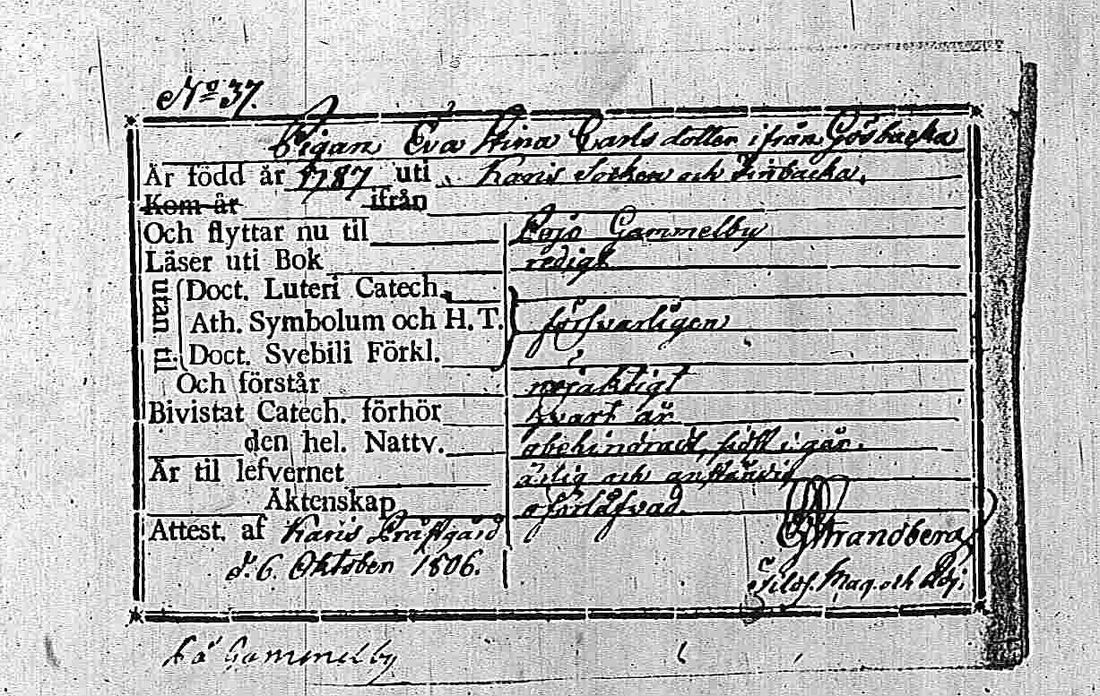 No 37.
Pigan Eva Stina Carls dotter ifrån Gösbacka
Är född år 1787 uti Karis Socken och Finbacka,
Kom år ifrån
Och flyttar nu til Lojo Gammelby
Läser uti Bok redigt
utan til
Doct. Luteri Catech.
Ath. Symbolum och H. T. försvarligen
Doct. Svebili Förkl.
Och förstår nöjaktigt
Bivistat Catech. förhör hvart år
den hel. Nattv. obehindrad, sidst i går.
Är til lefvernet ärlig och anständig
Äktenskap oförlåfvad
Attest. af Karis Prästgård
d. 6. Oktober 1806.
Strandberg
Filos. Mag. och Adj.
På Gammelby